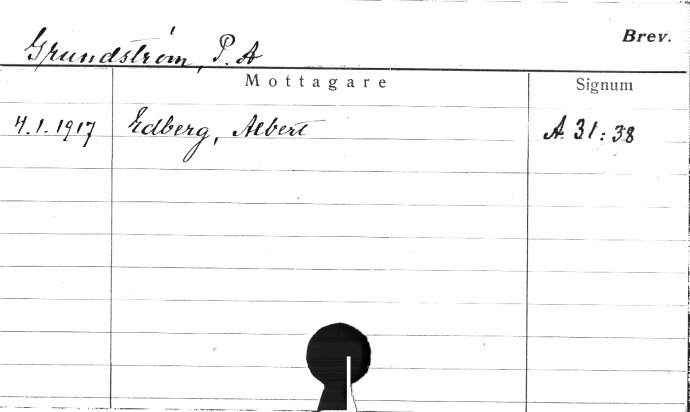 Brev.
Grundström, P. A
Mottagare Signum
4.1.1917 Edberg, Albert A. 31:38